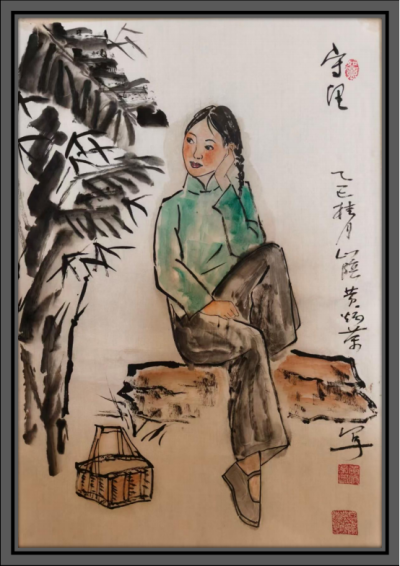 守望
乙巳桂月山阴黄炳荣写